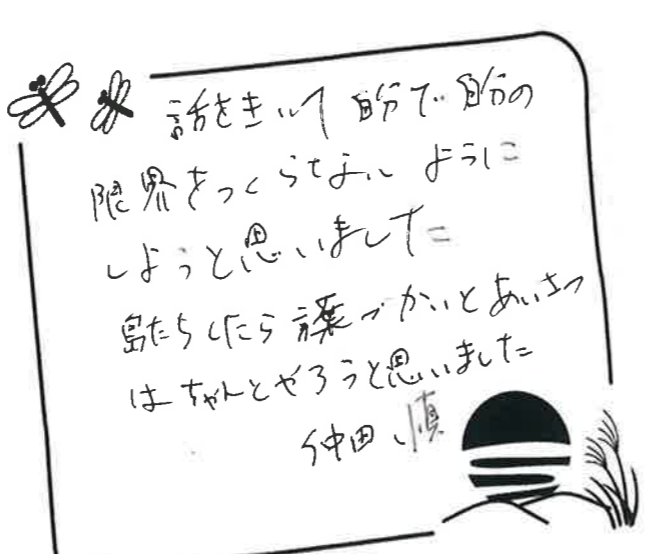 話をきいて自分で自分の
限界をつくらないように
しようと思いました
島たちしたら言葉づかいとあいさつ
はちゃんとやろうと思いました
仲田 慎